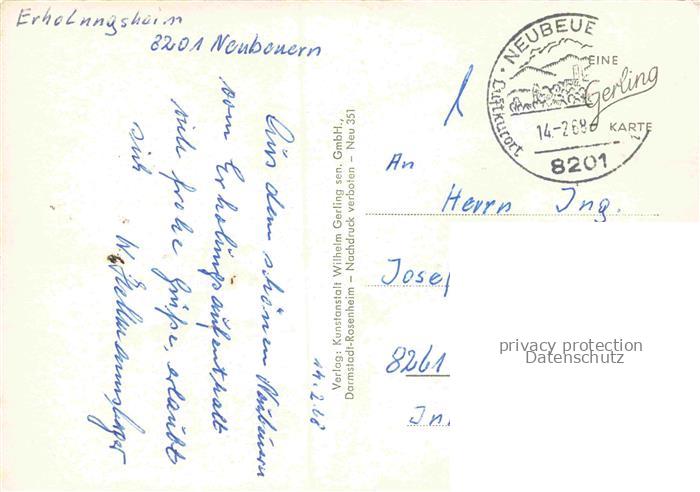 Erholungsheim
8201 Neubeuern
14.2.68
Aus dem schönen Neubeuern
vom Erholungsaufenthalt
viele frohe Grüße, erlaubt
sich
W.
Verlag: Kunstanstalt Wilhelm Gerling sen. GmbH.,
Darmstadt-Rosenheim – Nachdruck verboten – Neu 351
NEUBEUE
Luftkurort
14-2.68
8201
EINE
Gerling
KARTE
An
Herrn Ing.
Josef
8261
In
privacy protection
Datenschutz